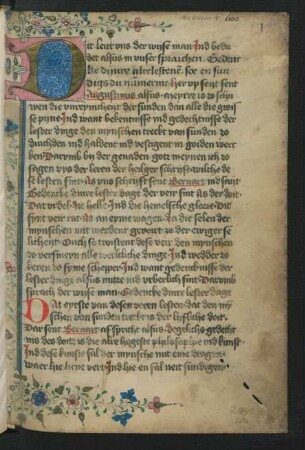 Dit leirt vns der wise man Ind bedu
det alsus in vnser spraichen. Gedenc
ke dinre alrelesten. soe en sun
dichs du nummerme Her vp sent sent
Augustinus alsus. meyrre is zo schu
wen die vnreynicheit der sunden dan alle die groi
se pyne Ind want bekentenisse ind gedechtenisse der
lester dinge den mynschen treckt van sunden zo
duechden ind haldent ind vestigent in goiden wer
ken Darumb by der genaden gotz meynen ich zo
sagen vys der leren der heilger schrift welche de
se lesten sint As vns schrijft sent Bernart ind saint
Gedencke dinre lester dage Dat eirste sint As der doit.
Dat ordel die helle Ind die hemelsche glorie Dit
synt veir rat As an eyme wagen Ja die selen der
mynschen mit werdent gevoirt zo der ewiger se
licheit Ouch so troistent dese veir den mynschen
zo versmayn alle werltliche dinge Ind wedder zo
keren zo syme schepper Ind want gedenckenisse der
lester dinge alsus nutze ind urberlich sint Darumb
sprach der wise man Gedencke dinre lester dage
Dat eyrste van desen veren lesten dat den my
schen van sunden treckt is der liifliche doit.
Dar sent Bernart aff spricht alsus Degelichs gedecht
nis des doitz is die alre hogeste philosophie ind kunst
Ind dese kunst sal der mynsche mit eme dragen
waer hie hene vert Ind hie en sal neit sundigen